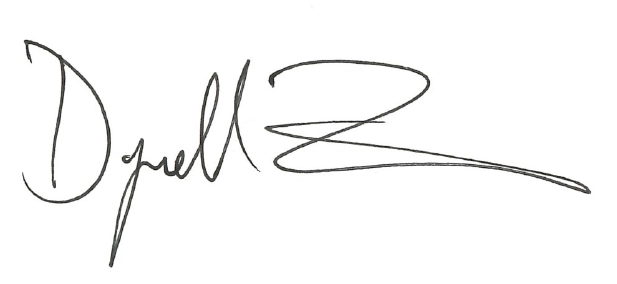 Dyrell Z